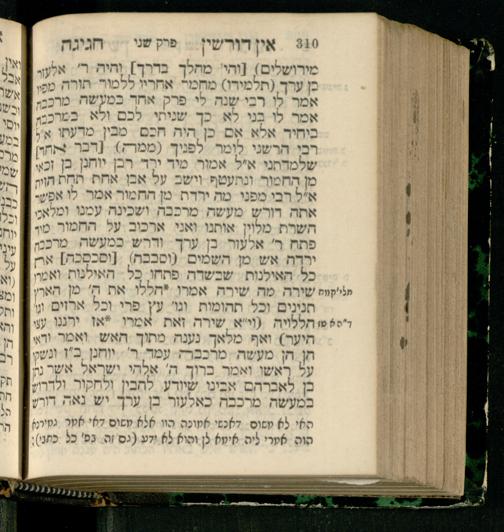 310 אין דורשין פרק שני חגיגה
מירושלים) [והי' מהלך בדרך] והיה ר' אלעזר
בן ערך (תלמידו) מחמר אחריו ללמוד תורה מפיו
אמר לו רבי שנה לי פרק אחד במעשה מרכבה
אמר לו בני לא כך שניתי לכם ולא במרכבה
ביחיד אלא אם כן היה חכם מבין מדעתו א"ל
רבי הרשני לומר לפניך (ממה) [דבר אחד]
שלמדתני א"ל אמור מיד ירד רבן יוחנן בן זכאי
מן החמור ונתעטף וישב על אבן אחת תחת הזית
א"ל רבי מפני מה ירדת מן החמור אמר לו אפשר
אתה דורש מעשה מרכבה ושכינה עמנו ומלאכי
השרת מלוין אותנו ואני ארכוב על החמור מיד
פתח ר' אלעזר בן ערך ודרש במעשה מרכבה
ירדה אש מן השמים (וסבבה) [וסכסכה] את
כל האילנות שבשדה פתחו כל האילנות ואמרו
שירה מה שירה אמרו *הללו את ה' מן הארץ
תהלי' קמח
תנינים וכל תהומות וגו' עץ פרי וכל ארזים וגו'
הללויה (וי"א שירה זאת אמרו *אז ירננו עצי
ד"ה א טז
היער) ואף מלאך נענה מתוך האש ואמר ודאי
הן הן מעשה מרכבה עמד ר' יוחנן ב"ז ונשקו
על ראשו ואמר ברוך ה' אלהי ישראל אשר נתן
בן לאברהם אבינו שיודע להבין ולחקור ולדרוש
במעשה מרכבה כאלעזר בן ערך יש נאה דורש
האי לא משום דאנשי אמונה הוו אלא משום דאי אמר גמירנא
הוה אמרי ליה אימא לן והוא לא ידע (גם זה בס' כל כתבי):